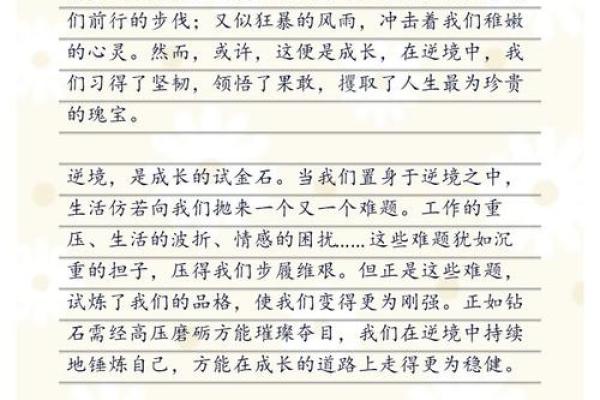 们前行的步伐；又似狂暴的风雨，冲击着我们稚嫩
的心灵。然而，或许，这便是成长，在逆境中，我
们习得了坚韧，领悟了果敢，攫取了人生最为珍贵
的瑰宝。
逆境，是成长的试金石。当我们置身于逆境之中，
生活仿若向我们抛来一个又一个难题。工作的重
压、生活的波折、情感的困扰……这些难题犹如沉
重的担子，压得我们步履维艰。但正是这些难题，
试炼了我们的品格，使我们变得更为刚强。正如钻
石需经高压磨砺方能璀璨夺目，我们在逆境中持续
地锤炼自己，方能在成长的道路上走得更为稳健。